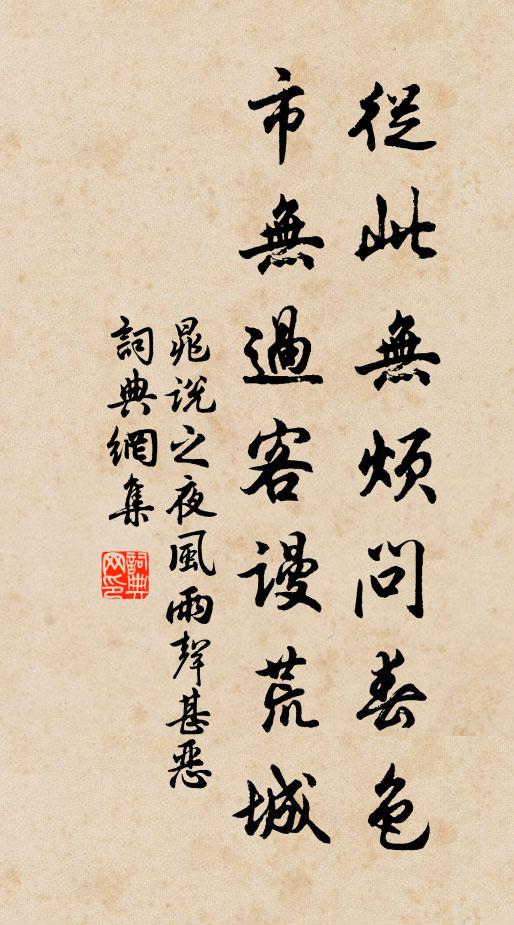 從此無煩問春色
市無過客謾荒城
晁說之夜風雨聲甚惡
詞典網集
詞典網印